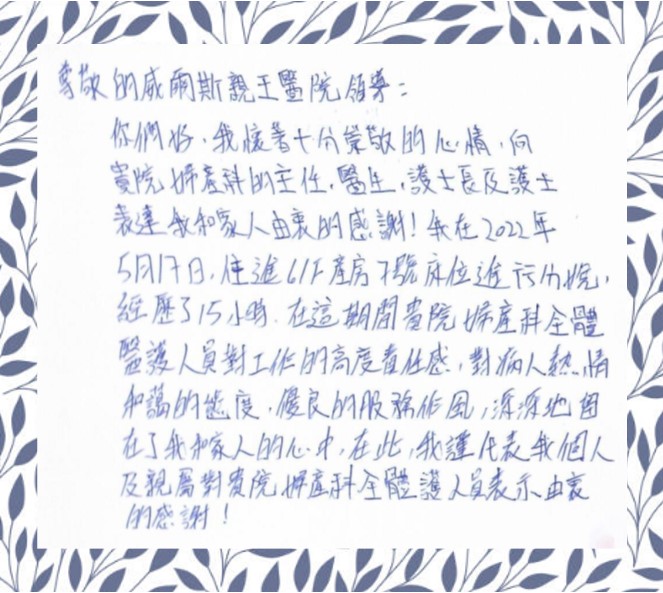 尊敬的威爾斯親王醫院領導：
你們好，我懷著十分崇敬的心情，向
貴院婦產科的主任，醫生，護士長及護士
表達我和家人由衷的感謝！我在2022年
5月17日，住進6/F產房7號床位進行分娩，
經歷了15小時．在這期間貴院婦產科全體
醫護人員對工作的高度責任感，對病人熱情
和藹的態度，優良的服務作風，深深地留
在了我和家人的心中，在此，我謹代表我個人
及親屬對貴院婦產科全體護人員表示由衷
的感謝！